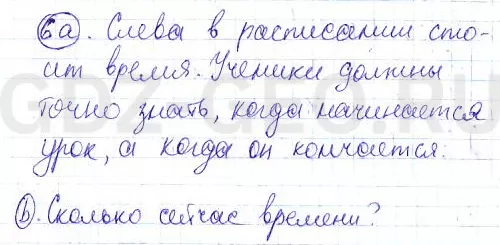 6a. Слева в расписании сто-
ит время. Ученики должны
точно знать, когда начинается
урок, а когда он кончается.
b. Сколько сейчас времени?
GDZ-GEO.RU